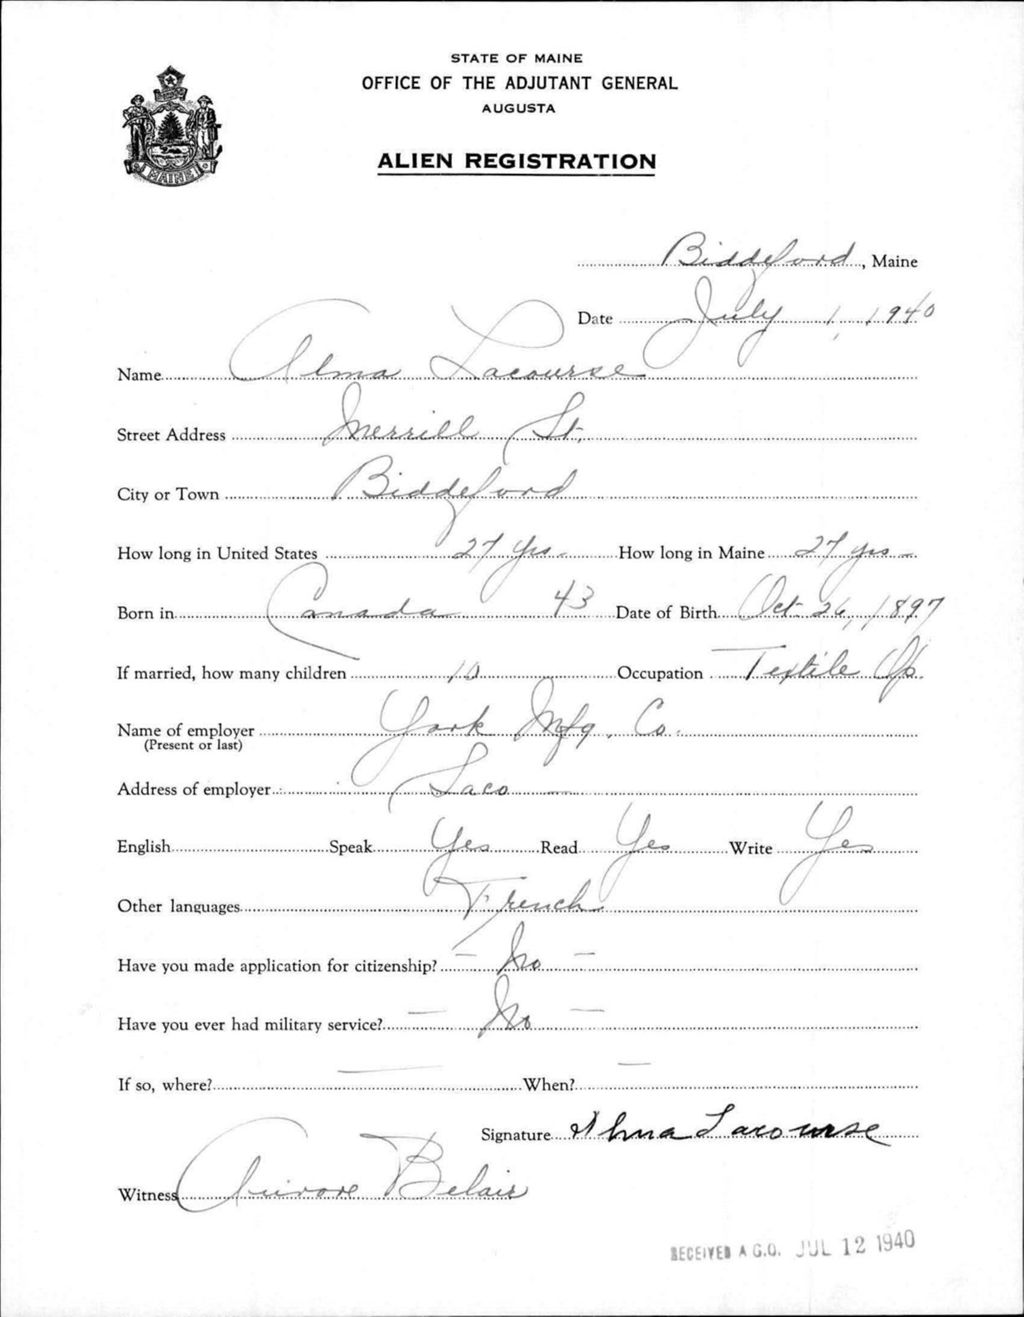 STATE OF MAINE
OFFICE OF THE ADJUTANT GENERAL
AUGUSTA
ALIEN REGISTRATION
MAINE
Biddeford, Maine
Date July 1, 1940
Name Alma Lacourse
Street Address Merrill St.
City or Town Biddeford
How long in United States 27 yrs. How long in Maine 27 yrs.
Born in Canada 43 Date of Birth Oct 26, 1897
If married, how many children 10 Occupation Textile Op.
Name of employer York Mfg. Co.
(Present or last)
Address of employer Saco
English Speak Yes Read Yes Write Yes
Other languages French
Have you made application for citizenship? — No —
Have you ever had military service? — No —
If so, where? — When? —
Signature Alma Lacourse
Witness Aurore Belair
RECEIVED A.G.O. JUL 12 1940